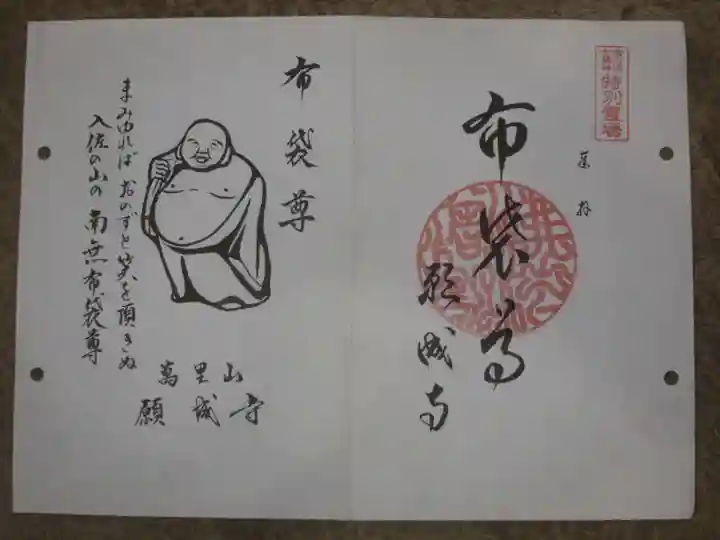 特別霊場
奉拝
布袋尊
願成寺
布袋尊
まみゆれば おのずと笑を頂きぬ
入佐の山の 南無布袋尊
萬里山
願成寺